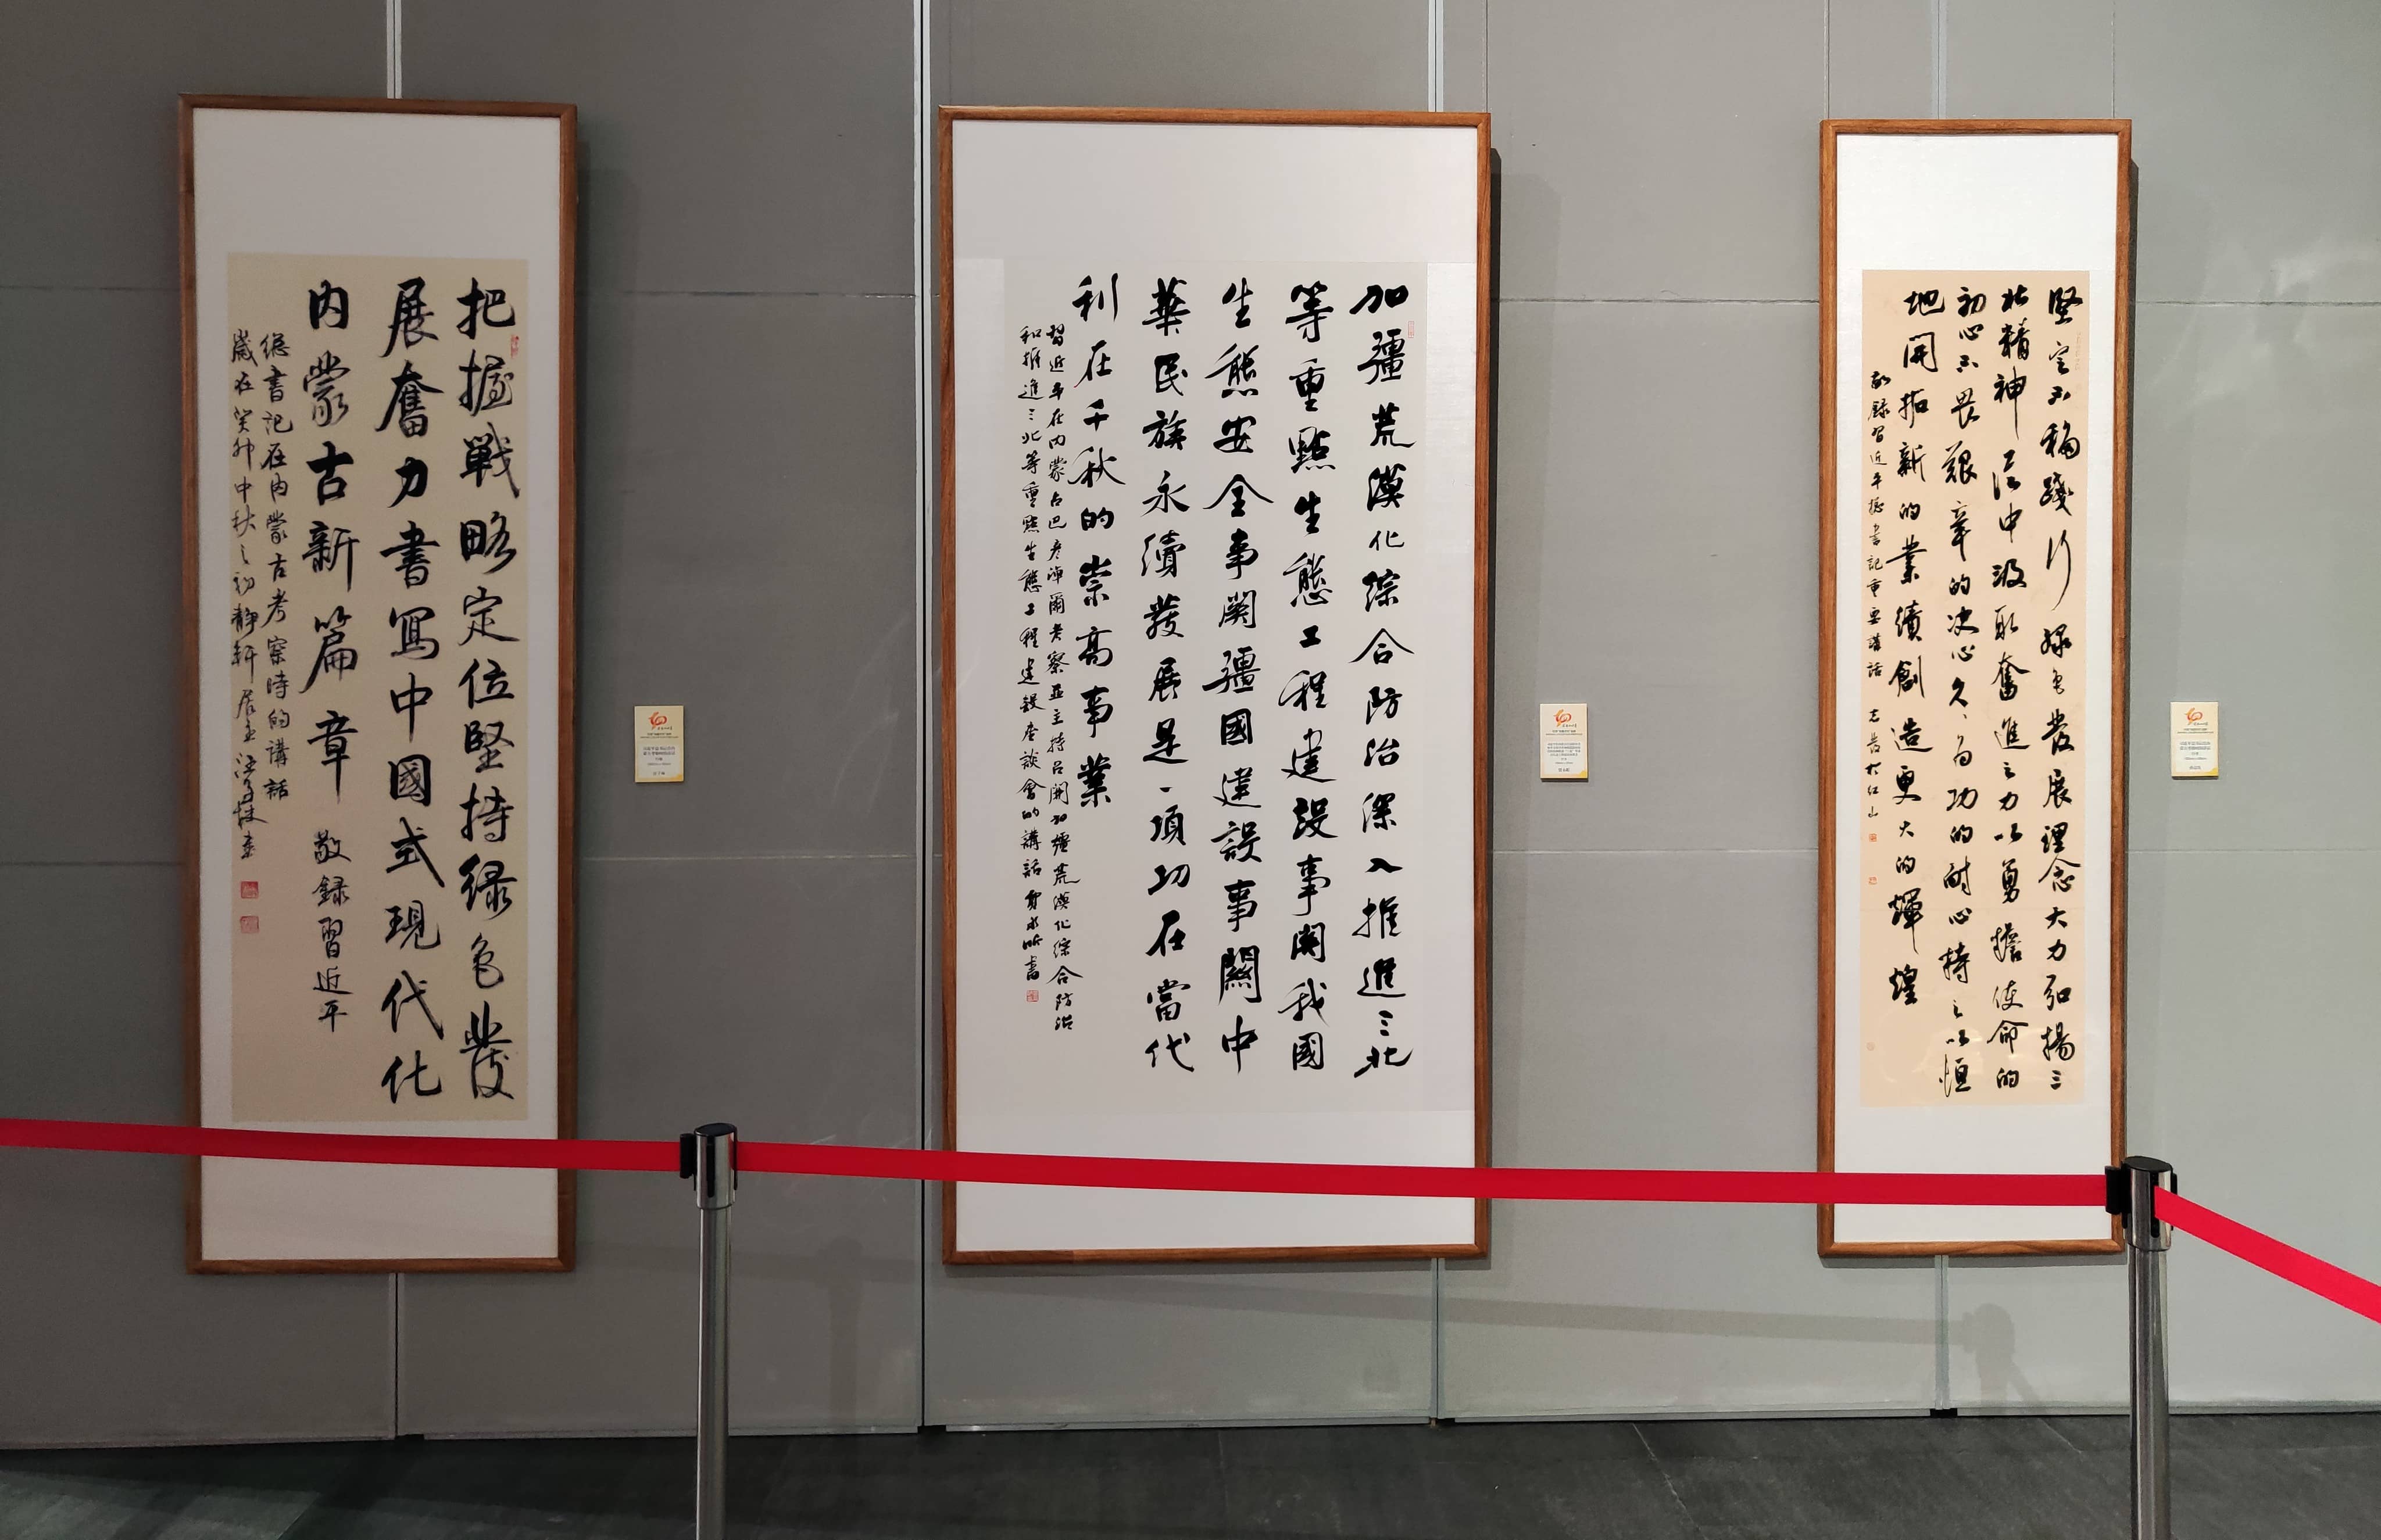 把握戰略定位堅持绿色發
展奮力書寫中國式現代化
内蒙古新篇章 敬録習近平
總書記在内蒙古考察時的講話
歲在癸卯中秋之初靜軒居主
加彊荒漠化综合防治深入推進三北
等重點生態工程建設事関我國
生態安全事関彊國建設事關中
華民族永續發展是一項功在當代
利在千秋的崇高事業
習近平在内蒙古巴彦淖爾考察並主持召開加彊荒漠化综合防治
和推進三北等重點生態工程建設座談會的講話
堅定不移踐行緑色發展理念大力弘揚三
北精神從中汲取奮進之力以勇擔使命的
初心不畏艱辛的决心久久為功的耐心持之以恒
地開拓新的業績創造更大的輝煌
敬録習近平總書記重要講話 志發於红山